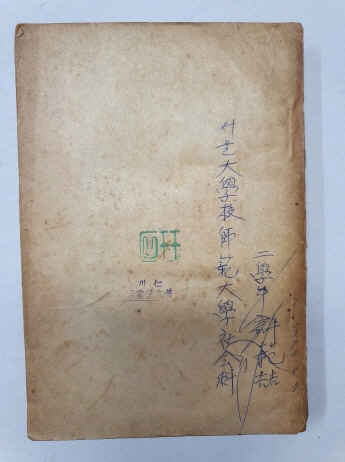 서울大學校師範大學社会科
二學年 許範喆
仁川